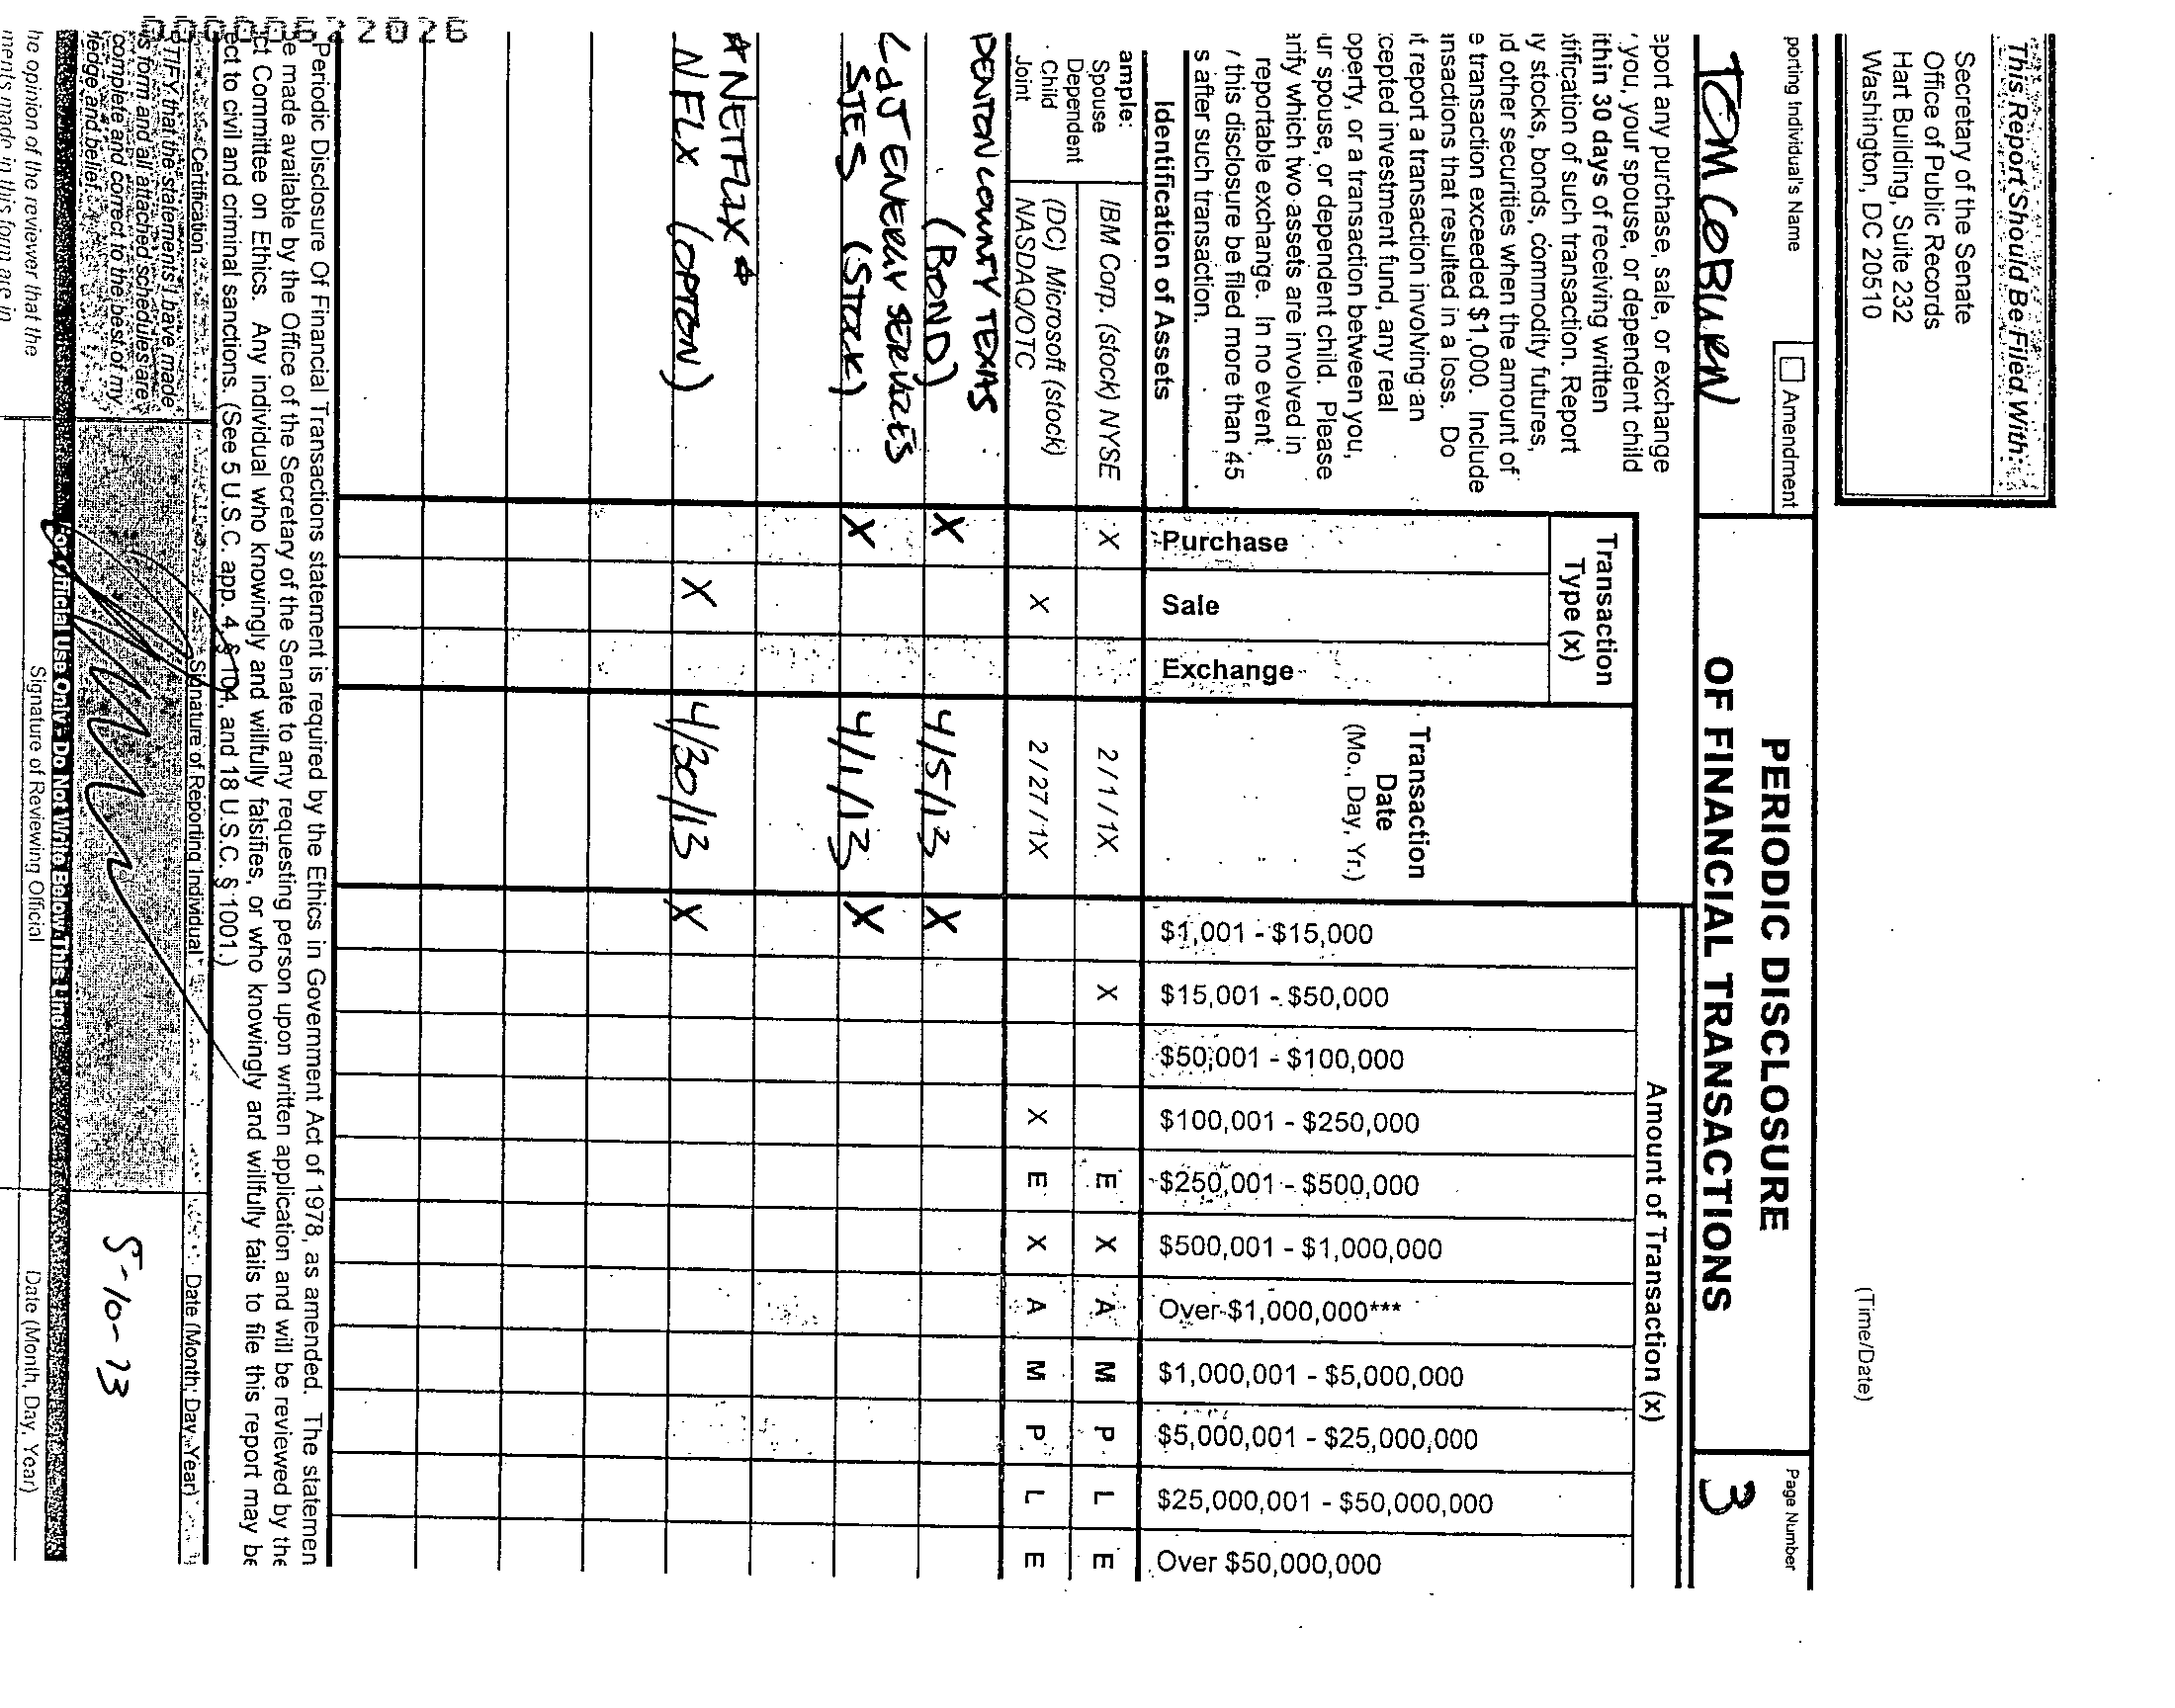 This Report Should Be Filed With:
Secretary of the Senate
Office of Public Records
Hart Building, Suite 232
Washington, DC 20510
(Time/Date)
porting Individual's Name
Amendment
TOM COBURN
PERIODIC DISCLOSURE
OF FINANCIAL TRANSACTIONS
Page Number
3
eport any purchase, sale, or exchange
you, your spouse, or dependent child
ithin 30 days of receiving written
otification of such transaction. Report
ny stocks, bonds, commodity futures,
nd other securities when the amount of
e transaction exceeded $1,000. Include
ansactions that resulted in a loss. Do
ot report a transaction involving an
cepted investment fund, any real
operty, or a transaction between you,
ur spouse, or dependent child. Please
arify which two assets are involved in
reportable exchange. In no event
y this disclosure be filed more than 45
s after such transaction.
Identification of Assets
Transaction
Type (x)
Purchase
Sale
Exchange
Transaction
Date
(Mo., Day, Yr.)
Amount of Transaction (x)
$1,001 - $15,000
$15,001 - $50,000
$50,001 - $100,000
$100,001 - $250,000
$250,001 - $500,000
$500,001 - $1,000,000
Over $1,000,000***
$1,000,001 - $5,000,000
$5,000,001 - $25,000,000
$25,000,001 - $50,000,000
Over $50,000,000
ample:
Spouse
Dependent
Child
Joint
IBM Corp. (stock) NYSE X 2/1/1X X E X A M P L E
(DC) Microsoft (stock)
NASDAQ/OTC X 2/27/1X X E X A M P L E
DENTON COUNTY TEXAS
(BOND) X 4/5/13 X
L&J ENERGY SERVICES
STES (STOCK) X 4/1/13 X
* NETFLIX *
NFLX (OPTION) X 4/30/13 X
Periodic Disclosure Of Financial Transactions statement is required by the Ethics in Government Act of 1978, as amended. The statemen
e made available by the Office of the Secretary of the Senate to any requesting person upon written application and will be reviewed by the
ct Committee on Ethics. Any individual who knowingly and willfully falsifies, or who knowingly and willfully fails to file this report may be
ect to civil and criminal sanctions. (See 5 U.S.C. app. 4, § 104, and 18 U.S.C. § 1001.)
Certification
Signature of Reporting Individual
Date (Month, Day, Year)
TIFY that the statements I have made
is form and all attached schedules are
complete and correct to the best of my
ledge and belief.
5-10-13
For Official Use Only - Do Not Write Below This Line
he opinion of the reviewer that the
ments made in this form are in
Signature of Reviewing Official
Date (Month, Day, Year)